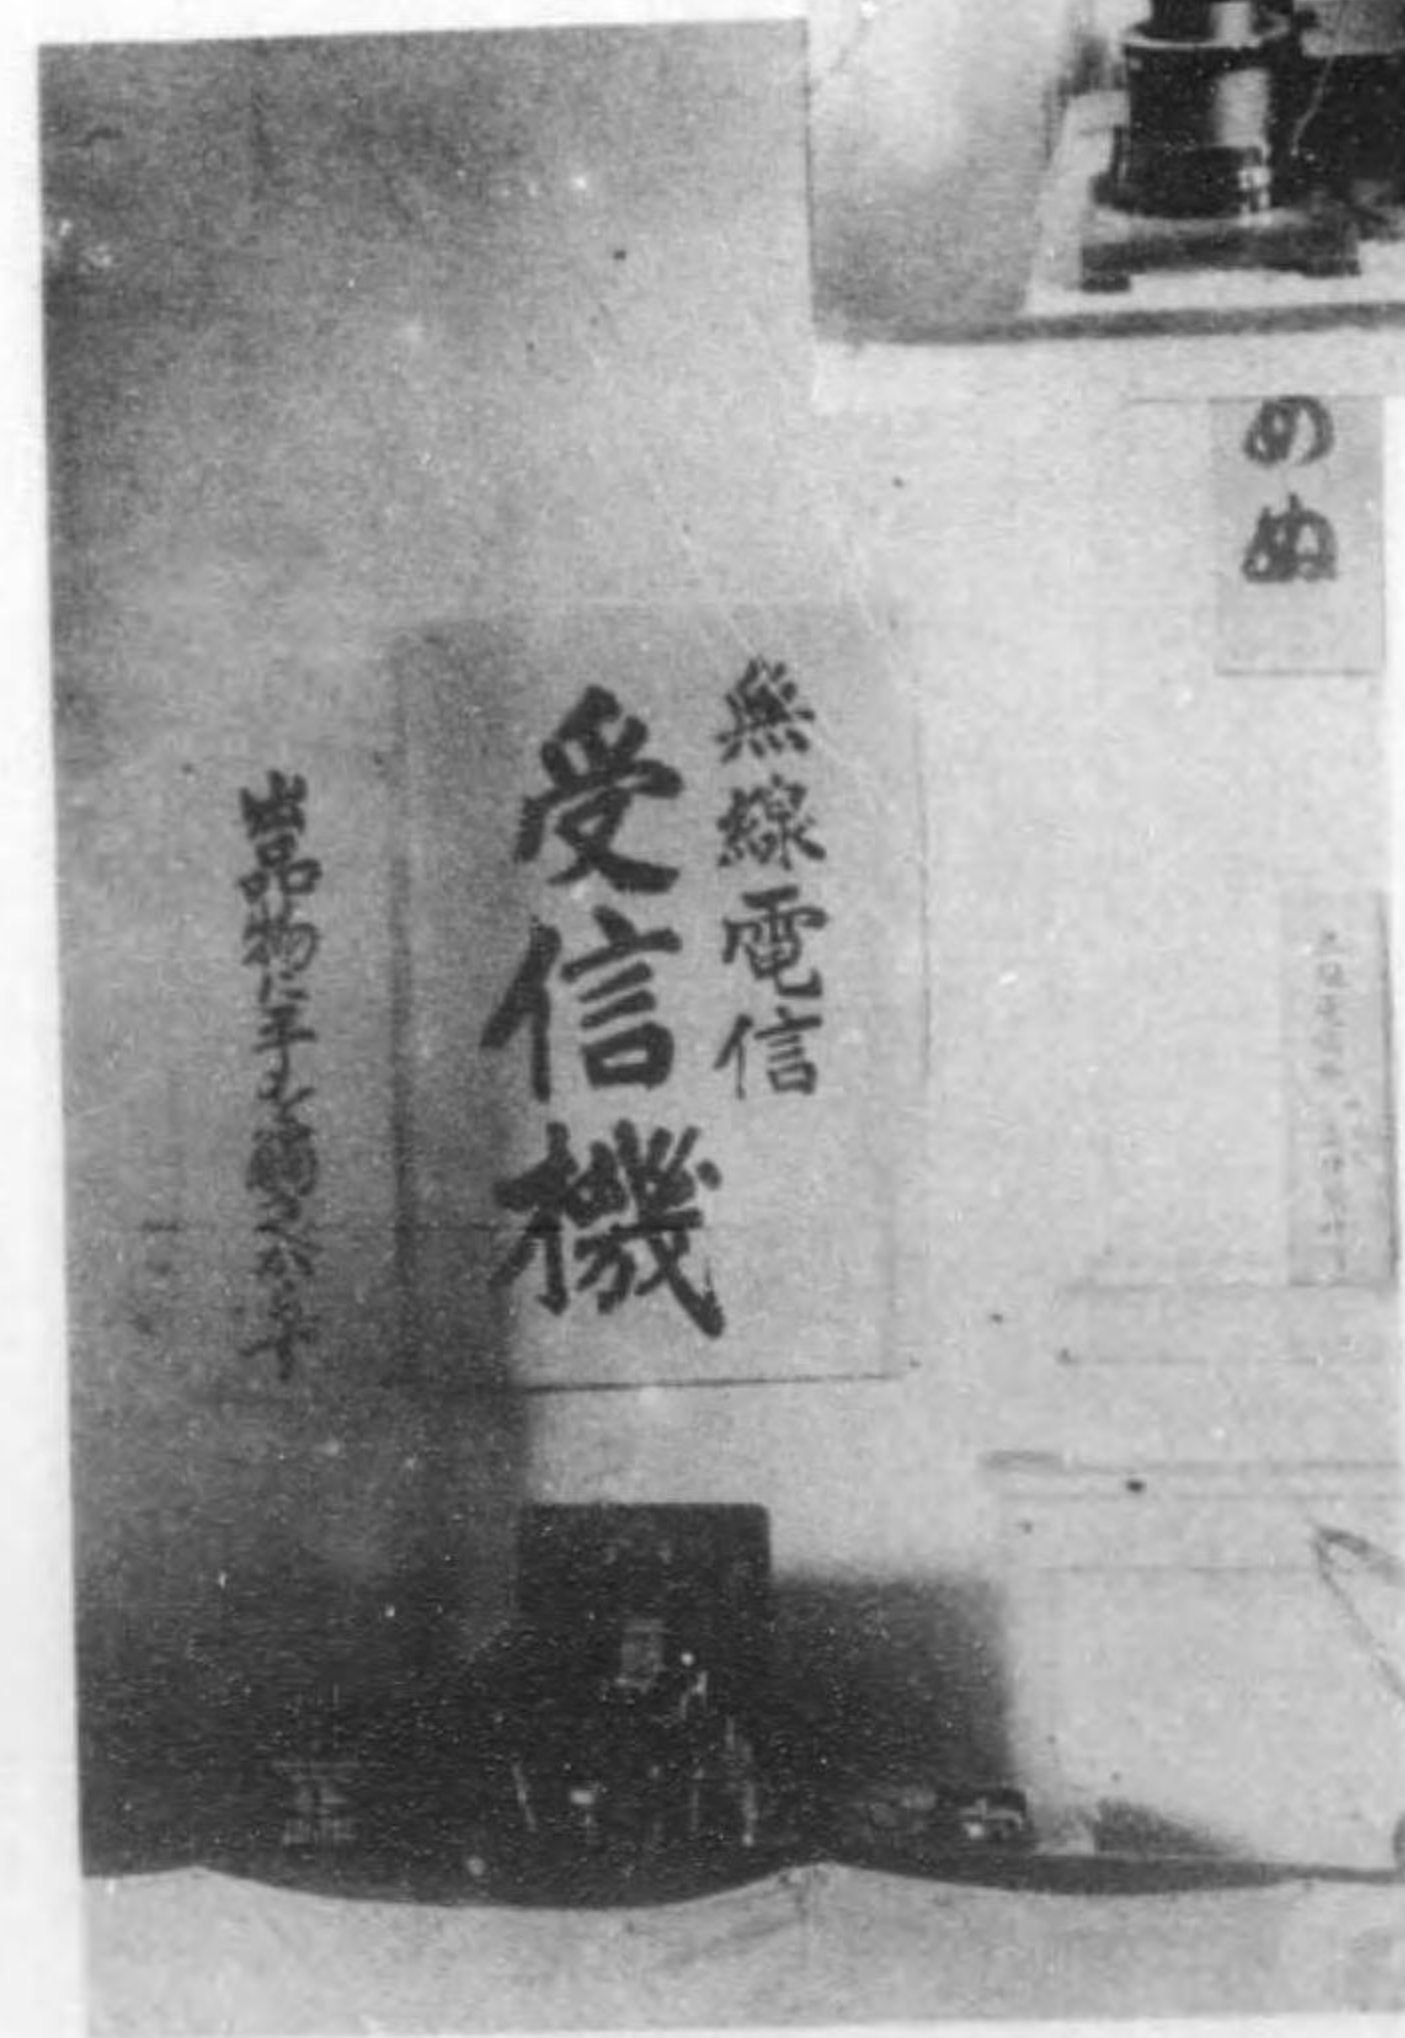 めぬ
無線電信
受信機
出品物に手を觸るべからず